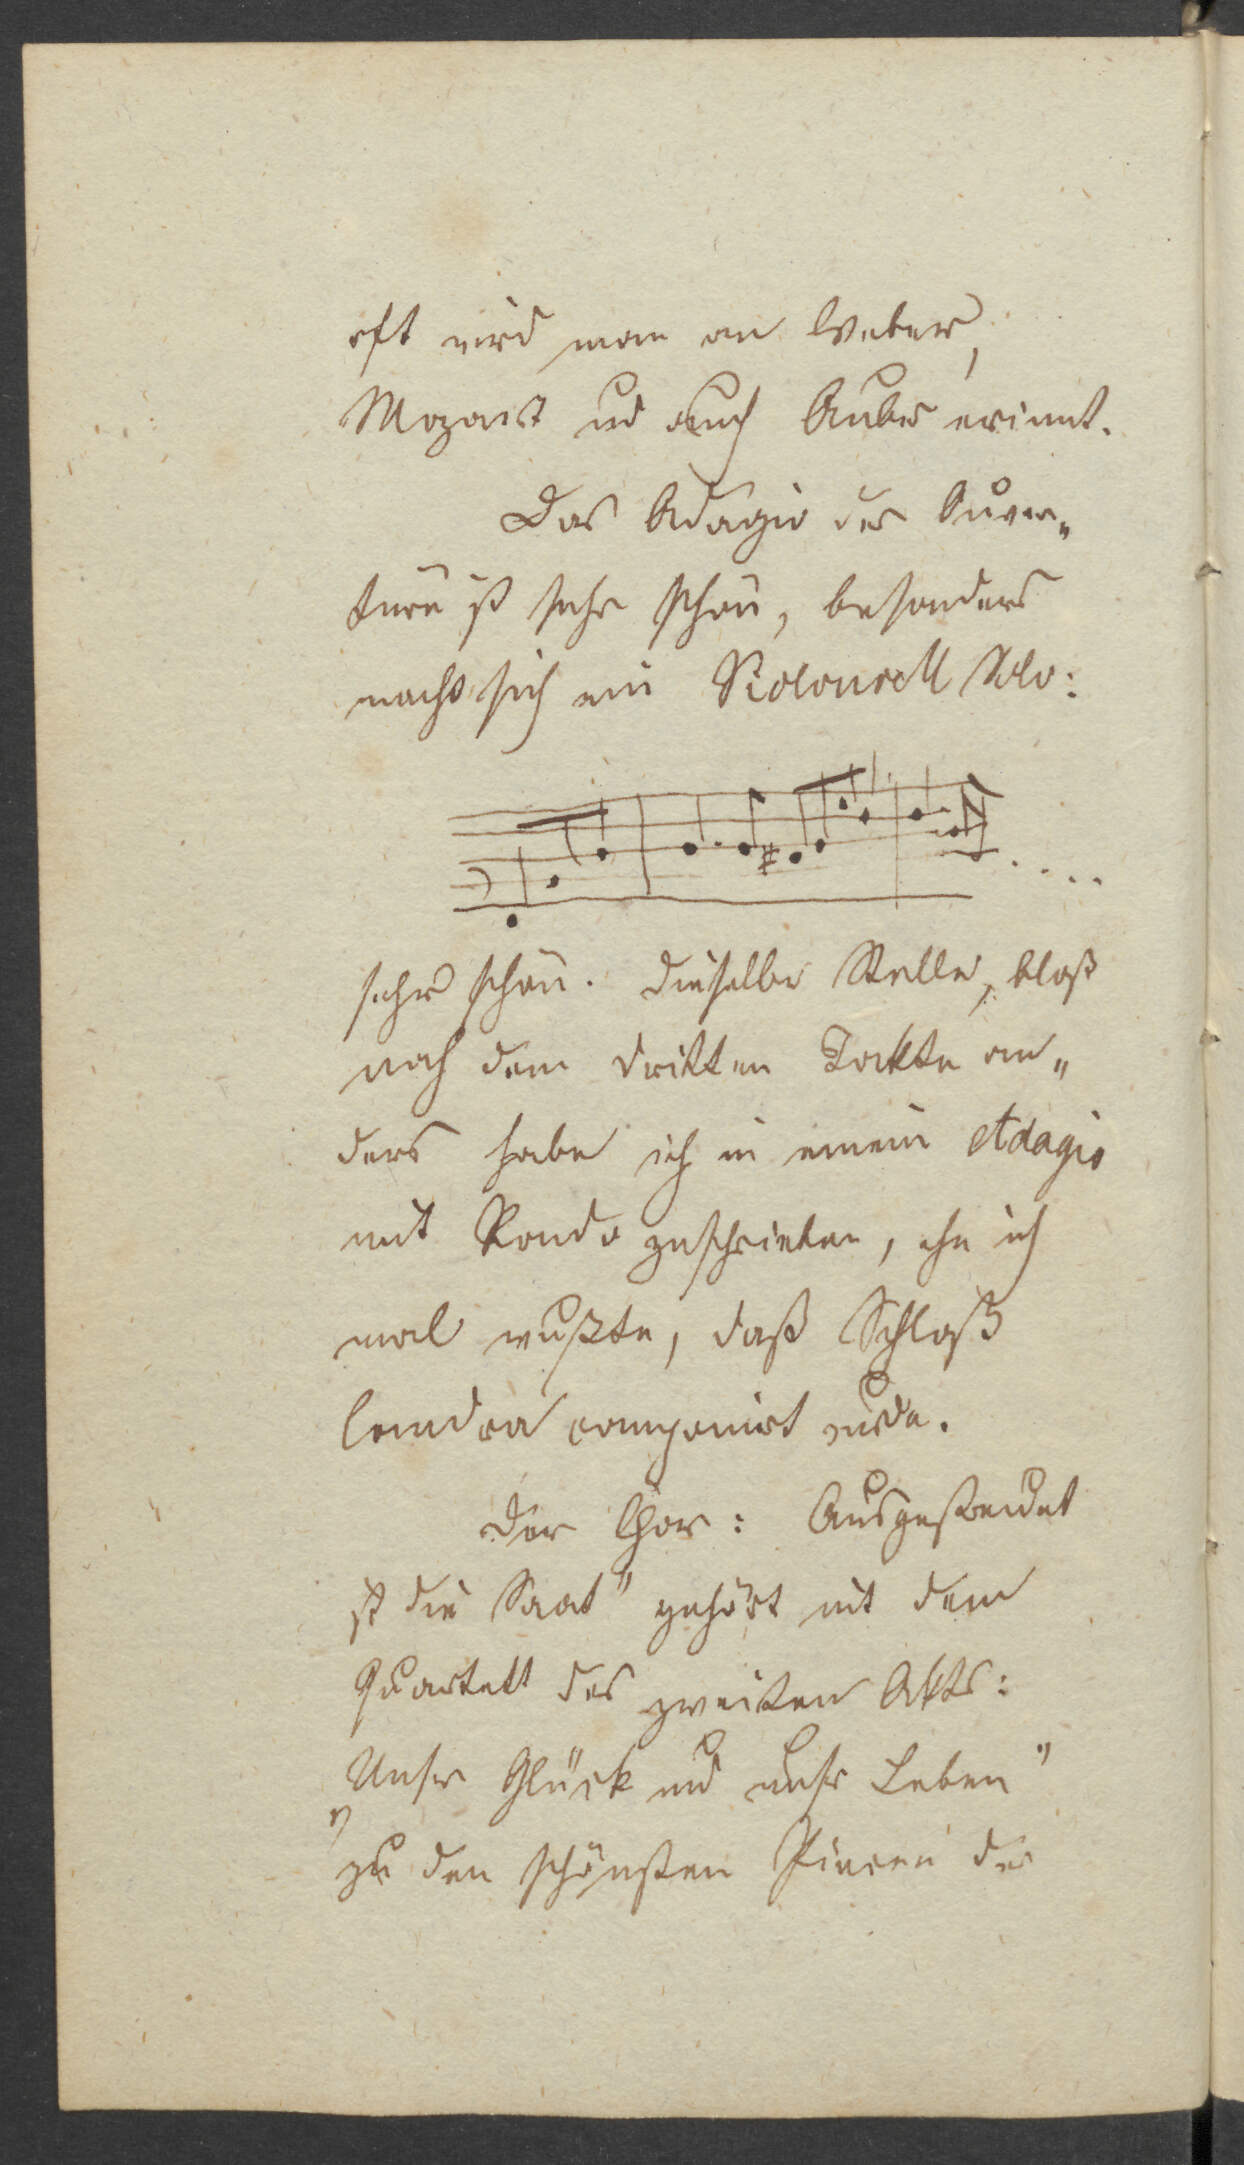 oft wird man an Weber,
Mozart und auch Auber erinnt.
Das Adagio der Ouver„
türe ist sehr schön, besonders
macht sich ein Violoncell Solo:
sehr schön. Dieselbe Stelle, bloß
nach dem dritten Takte an„
ders habe ich in einem Adagio
mit Rondo geschrieben, ehe ich
mal wußte, daß Schloß
Candra componirt wurde.
Der Chor: Ausgestreut
ist die Saat" gehört mit dem
Quartett des zweiten Akts:
„Unser Glück und unser Leben"
zu den schönsten Piecen der